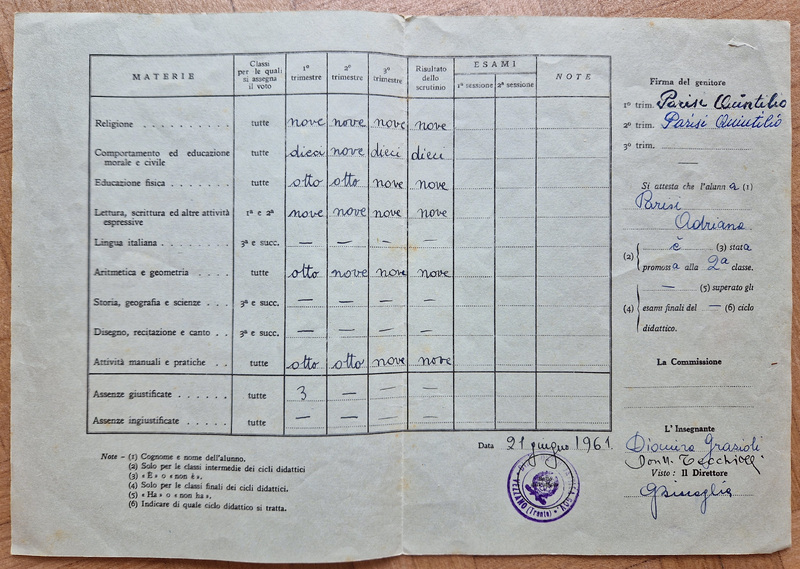 MATERIE
Classi per le quali si assegna il voto
1º trimestre
2º trimestre
3º trimestre
Risultato dello scrutinio
ESAMI
1ª sessione
2ª sessione
NOTE
Religione . . . . . . . . . . tutte nove nove nove nove
Comportamento ed educazione
morale e civile . . . . . . . tutte dieci nove dieci dieci
Educazione fisica . . . . . . . tutte otto otto nove nove
Lettura, scrittura ed altre attività
espressive 1ª e 2ª nove nove nove nove
Lingua italiana . . . . . . . . 3ª e succ. — — — —
Aritmetica e geometria . . . . . tutte otto nove nove nove
Storia, geografia e scienze . . . 3ª e succ. — — — —
Disegno, recitazione e canto . . 3ª e succ. — — — —
Attività manuali e pratiche . . tutte otto otto nove nove
Assenze giustificate . . . . . . tutte 3 — — —
Assenze ingiustificate . . . . . tutte — — — —
Note - (1) Cognome e nome dell'alunno.
(2) Solo per le classi intermedie dei cicli didattici
(3) « È » o « non è ».
(4) Solo per le classi finali dei cicli didattici.
(5) « Ha » o « non ha ».
(6) Indicare di quale ciclo didattico si tratta.
Data 21 giugno 1961.
VEZZANO (Trento)
Firma del genitore
1º trim. Parisi Quintilio
2º trim. Parisi Quintilio
3º trim.
—
Si attesta che l'alunn a (1)
Parisi
Adriana
(2) è (3) stata
promossa alla 2ª classe.
— (5) superato gli
(4) esami finali del — (6) ciclo
didattico.
La Commissione
L'Insegnante
Diomira Grazioli
Visto: Il Direttore